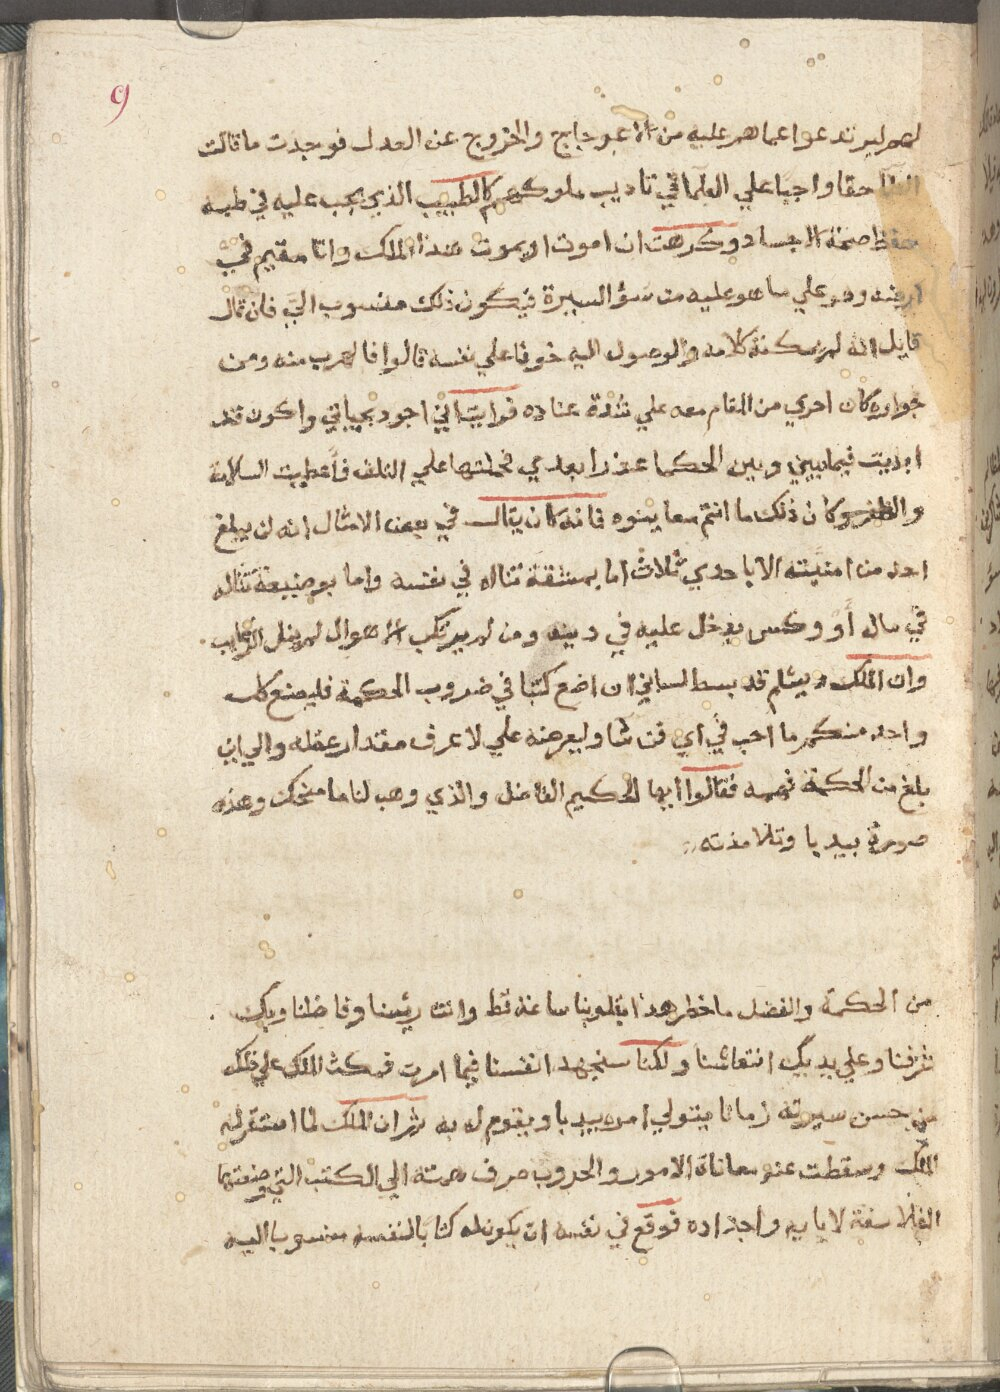 ٩
لهم ليرتدعوا عما هم عليه من الاعوجاج والخروج عن العدل فوجدت ما قالت
العلما حقا واجبا علي العلما في تاديب ملوكهم كالطبيب الذي يجب عليه في طبه
حفظ صحة الاجساد وكرهت ان اموت او يموت هذا الملك وانا مقيم في
ارضه وهو علي ما هو عليه من سؤ السيرة فيكون ذلك منسوب الي فان قال
قايل انه لم يمكنه كلامه والوصول اليه خوفا علي نفسه قالوا فالهرب منه ومن
جواره كان احري من المقام معه علي شدة عناده فرايت اني اجود بحياتي واكون قد
ابديت فيما بيني وبين الحكما عذرا بعدي فحملتها علي التلف فأعطيت السلامة
والظفر وكان ذلك ما انتم معاينوه فانه كان يقال في بعض الامثال انه لن يبلغ
احد من امنيته الا باحدي ثلاث اما بمشقة تناله في نفسه واما بوضيعة تناله
في ماله أو وكس يدخل عليه في دينه ومن لم يرتكب الاهوال لم ينل الرغايب
وان الملك دبشلم قد بسط لساني ان اضع كتبا في ضروب الحكمة فليضع كل
واحد منكم ما احب في أي فن شا وليعرضه علي لاعرف مقدار عقله والي اين
بلغ من الحكمة فهمه فقالوا أيها الحكيم الفاضل والذي وهب لنا ما منحك وهذه
صورة بيدبا وتلامذته
من الحكمة والفضل ما خطر هذا بقلوبنا ساعة قط وانت رئيسنا وفاضلنا وبك
شرفنا وعلي يديك انتعاشنا ولكنا سنجهد انفسنا فيما امرت فمكث الملك علي ذلك
من حسن سيرته زمانا يتولي امره بيدبا ويقوم له به ثم ان الملك لما استقر له
الملك وسقطت عنه معاناة الامور والحروب صرف همته الي الكتب التي وضعتها
الفلاسفة لابايه واجداده فوقع في نفسه ان يكون له كتابا لنفسه منسوبا اليه